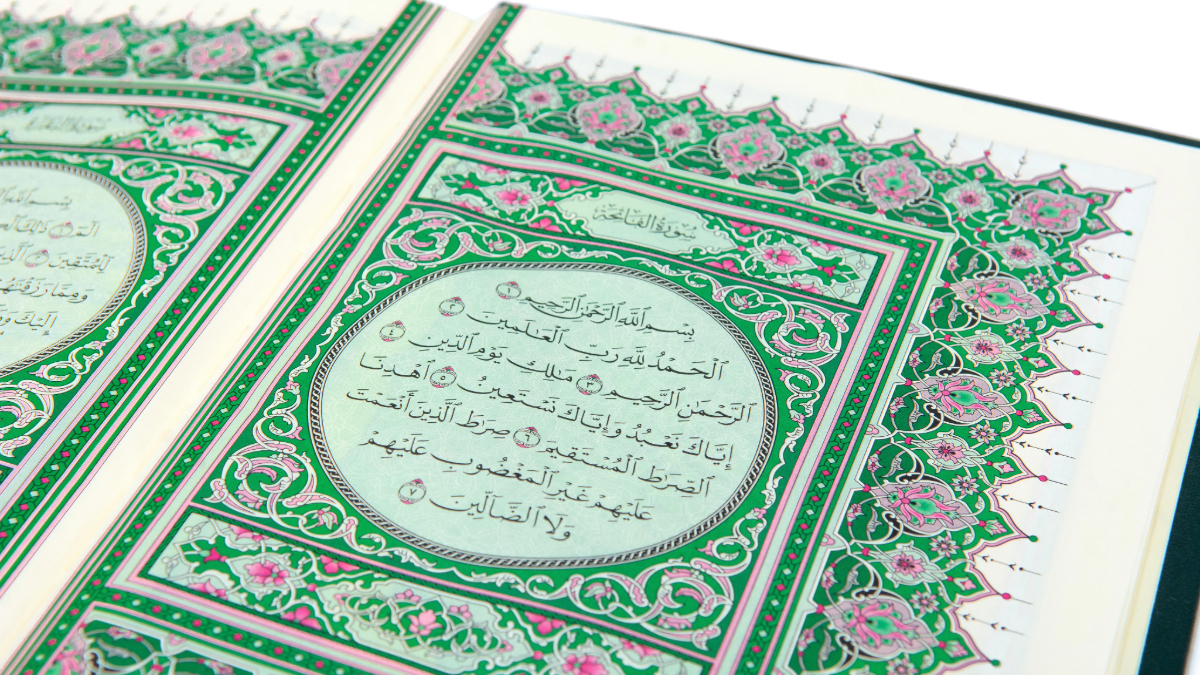 سُورَةُ الْفَاتِحَةِ
بِسْمِ ٱللَّهِ ٱلرَّحْمَٰنِ ٱلرَّحِيمِ ١
ٱلْحَمْدُ لِلَّهِ رَبِّ ٱلْعَٰلَمِينَ ٢
ٱلرَّحْمَٰنِ ٱلرَّحِيمِ ٣ مَٰلِكِ يَوْمِ ٱلدِّينِ ٤
إِيَّاكَ نَعْبُدُ وَإِيَّاكَ نَسْتَعِينُ ٥ ٱهْدِنَا
ٱلصِّرَٰطَ ٱلْمُسْتَقِيمَ ٦ صِرَٰطَ ٱلَّذِينَ أَنْعَمْتَ
عَلَيْهِمْ غَيْرِ ٱلْمَغْضُوبِ عَلَيْهِمْ
وَلَا ٱلضَّآلِّينَ ٧
سُورَةُ الْبَقَرَةِ
بِسْمِ ٱللَّهِ
الٓمٓ ١ ذَٰلِكَ
لِّلْمُتَّقِينَ ٢
وَمِمَّا رَزَقْنَٰهُمْ
إِلَيْكَ